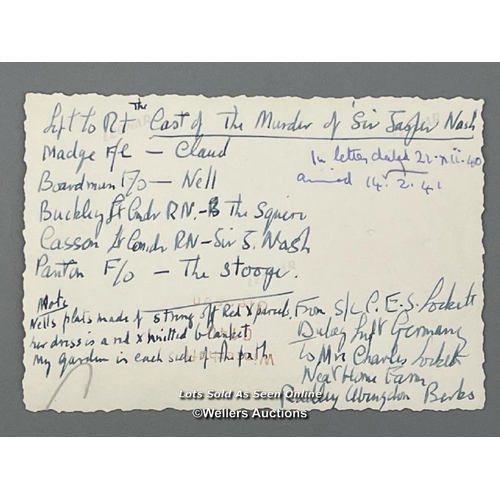 Left to Rt The Cast of The Murder of 'Sir Jasper Nash
Madge F/L – Claud
In letter dated 21.XII.40
arrived 14.2.41
Boardman P/O – Nell
Buckley Lt Cmdr RN. – The Squire
Casson Lt Comdr RN – Sir J. Nash
Panton F/O – The Stooge.
Note
Nells plats made of string off Red X parcels,
her dress is a red X knitted blanket
My garden is each side of the path
From S/L C.E.S. Lockett
Dulag Luft Germany
to Mrs Charles Lockett
New Home Farm
Abingdon Berks
Lots Sold As Seen Online
©Wellers Auctions